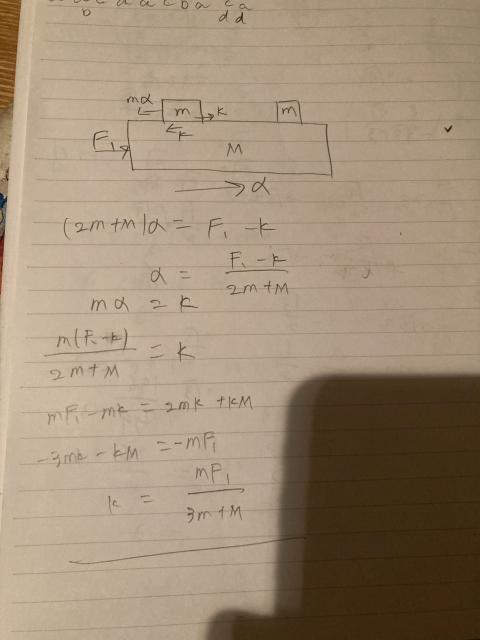 b c d a c b a c a
b d d
mα m → k m
← k
F₁ → M
→ α
(2m+M)α = F₁ - k
α = \frac{F₁ - k}{2m+M}
mα = k
\frac{m(F₁-k)}{2m+M} = k
mF₁ - mk = 2mk + kM
-3mk - kM = -mF₁
k = \frac{mF₁}{3m+M}